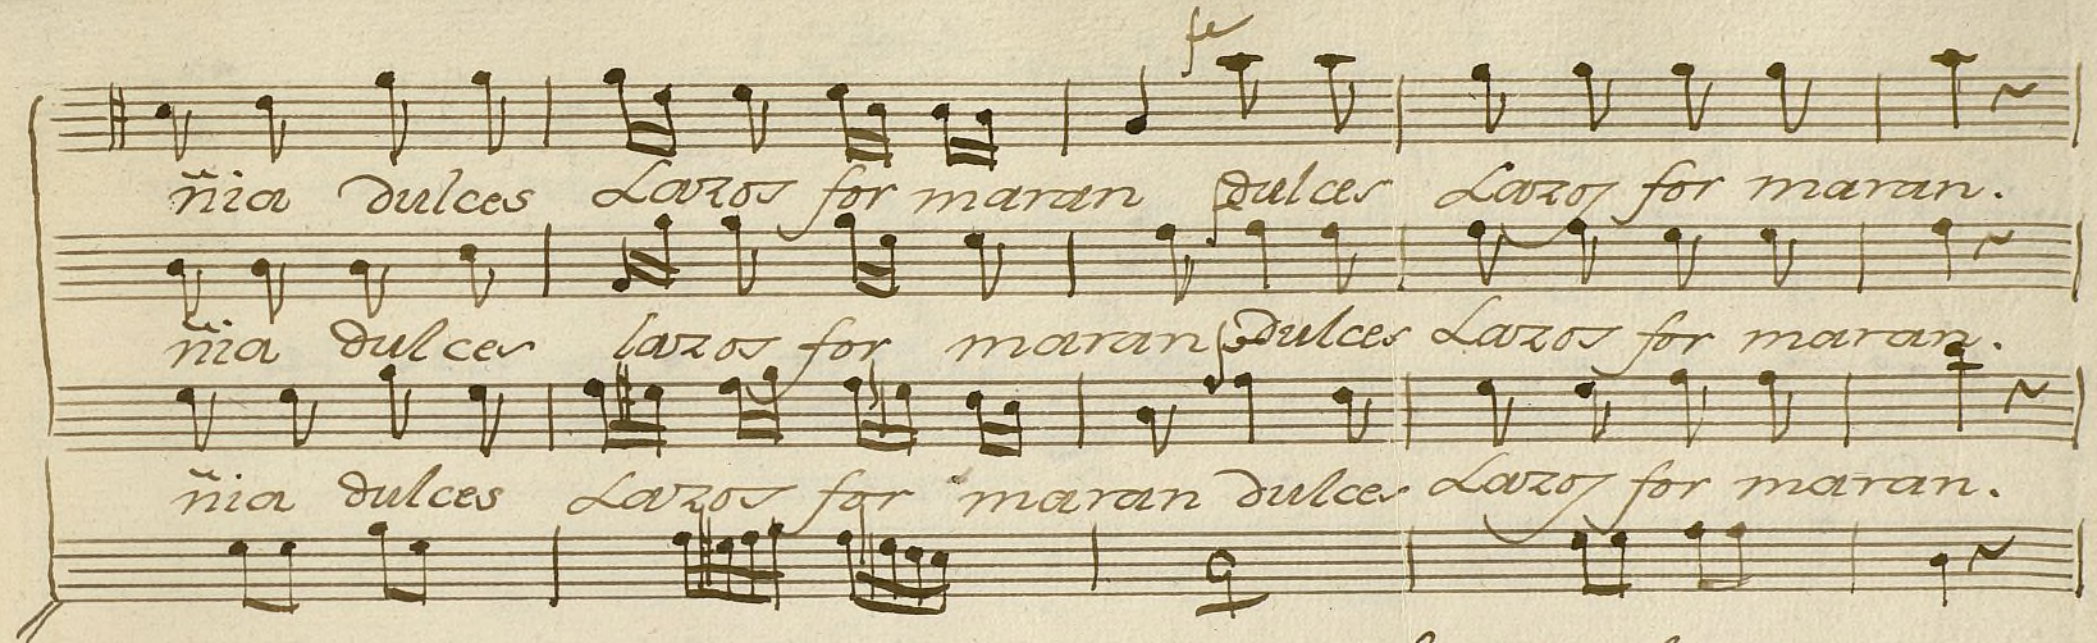 fe
ñia dulces Lazos for maran dulces Lazos for maran.
ñia dulces lazos for maran dulces Lazos for maran.
ñia dulces Lazos for maran dulces Lazos for maran.